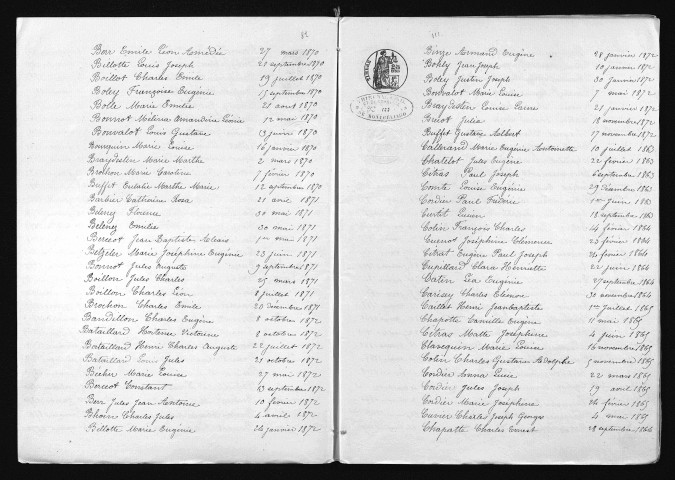 81
Berr Emile Léon Amédée 27 mars 1870
Billotte Louis Joseph 20 septembre 1870
Boillot Charles Emile 19 juillet 1870
Boley Françoise Eugénie 15 septembre 1870
Bolle Marie Emélie 21 aout 1870
Bonnot Amandine 12 mai 1870
Bonvalot Louis Gustave 13 juin 1870
Bouquin Marie Louise 16 janvier 1870
Braydelen Marie Marthe 2 mars 1870
Brochon Marie Caroline 7 février 1870
Buffet Eulalie Marthe Marie 12 septembre 1870
Barbier Catherine Rosa 21 avril 1871
Beleney Florence 30 mai 1871
Beleney Emilie 30 mai 1871
Bercot Jean Baptiste 1er mai 1871
Betzeler Marie Joséphine Eugénie 23 juin 1871
Bonnot Jules Auguste 9 septembre 1871
Boillon Jules Charles 25 mars 1871
Boillon Charles Léon 8 juillet 1871
Brochon Charles Emile 20 décembre 1871
Bandillon Charles Eugène 8 octobre 1872
Bataillard Hortense Victorine 8 octobre 1872
Bataillard Henri Charles Auguste 22 juillet 1872
Bataillard Louis Jules 21 octobre 1872
Bieber Marie Louise 27 mai 1872
Bercot Constant 13 septembre 1872
Berr Jules Jean Antoine 10 février 1872
Charles Jules 4 avril 1872
Billotte Marie Eugénie 24 janvier 1872
Binze Armand Eugène 28 janvier 1872
Bohly Jean Joseph 10 janvier 1872
Boley Justin Joseph 30 janvier 1872
Bonvalot Marie Louise 7 mai 1872
Braydelen Louise Laure 21 janvier 1872
Bricot Julia 18 novembre 1872
Buffet Gustave Albert 17 novembre 1872
Callerand Marie Eugénie Antoinette 10 juillet 1863
Chatelot Jules Eugène 22 février 1863
Citras Paul Joseph 6 septembre 1863
Comte Louise Eugénie 29 décembre 1863
Cordier Paul Frédéric 1er juin 1863
Curtit Lucien 18 septembre 1863
Colin François Charles 14 février 1864
Cuenot Joséphine Clémence 23 février 1864
Citrat Eugène Paul Joseph 20 février 1864
Cupillard Clara Henriette 22 juin 1864
Catin Léa Eugénie 27 septembre 1864
Carisey Charles 30 novembre 1864
Caillet Henri Jeanbaptiste 1er juillet 1865
Chapotte Camille Eugène 11 mai 1865
Citras Joséphine 4 juin 1865
Clarequin Marie Louise 16 novembre 1865
Colin Charles Gustave Adolphe 5 novembre 1865
Cordier Anna Lucie 22 mars 1865
Cordier Jules Joseph 19 avril 1865
Cordier Marie Joséphine 24 février 1865
Cuvier Charles Joseph Georges 4 mai 1865
Chapatte Charles Ernest 28 septembre 1864